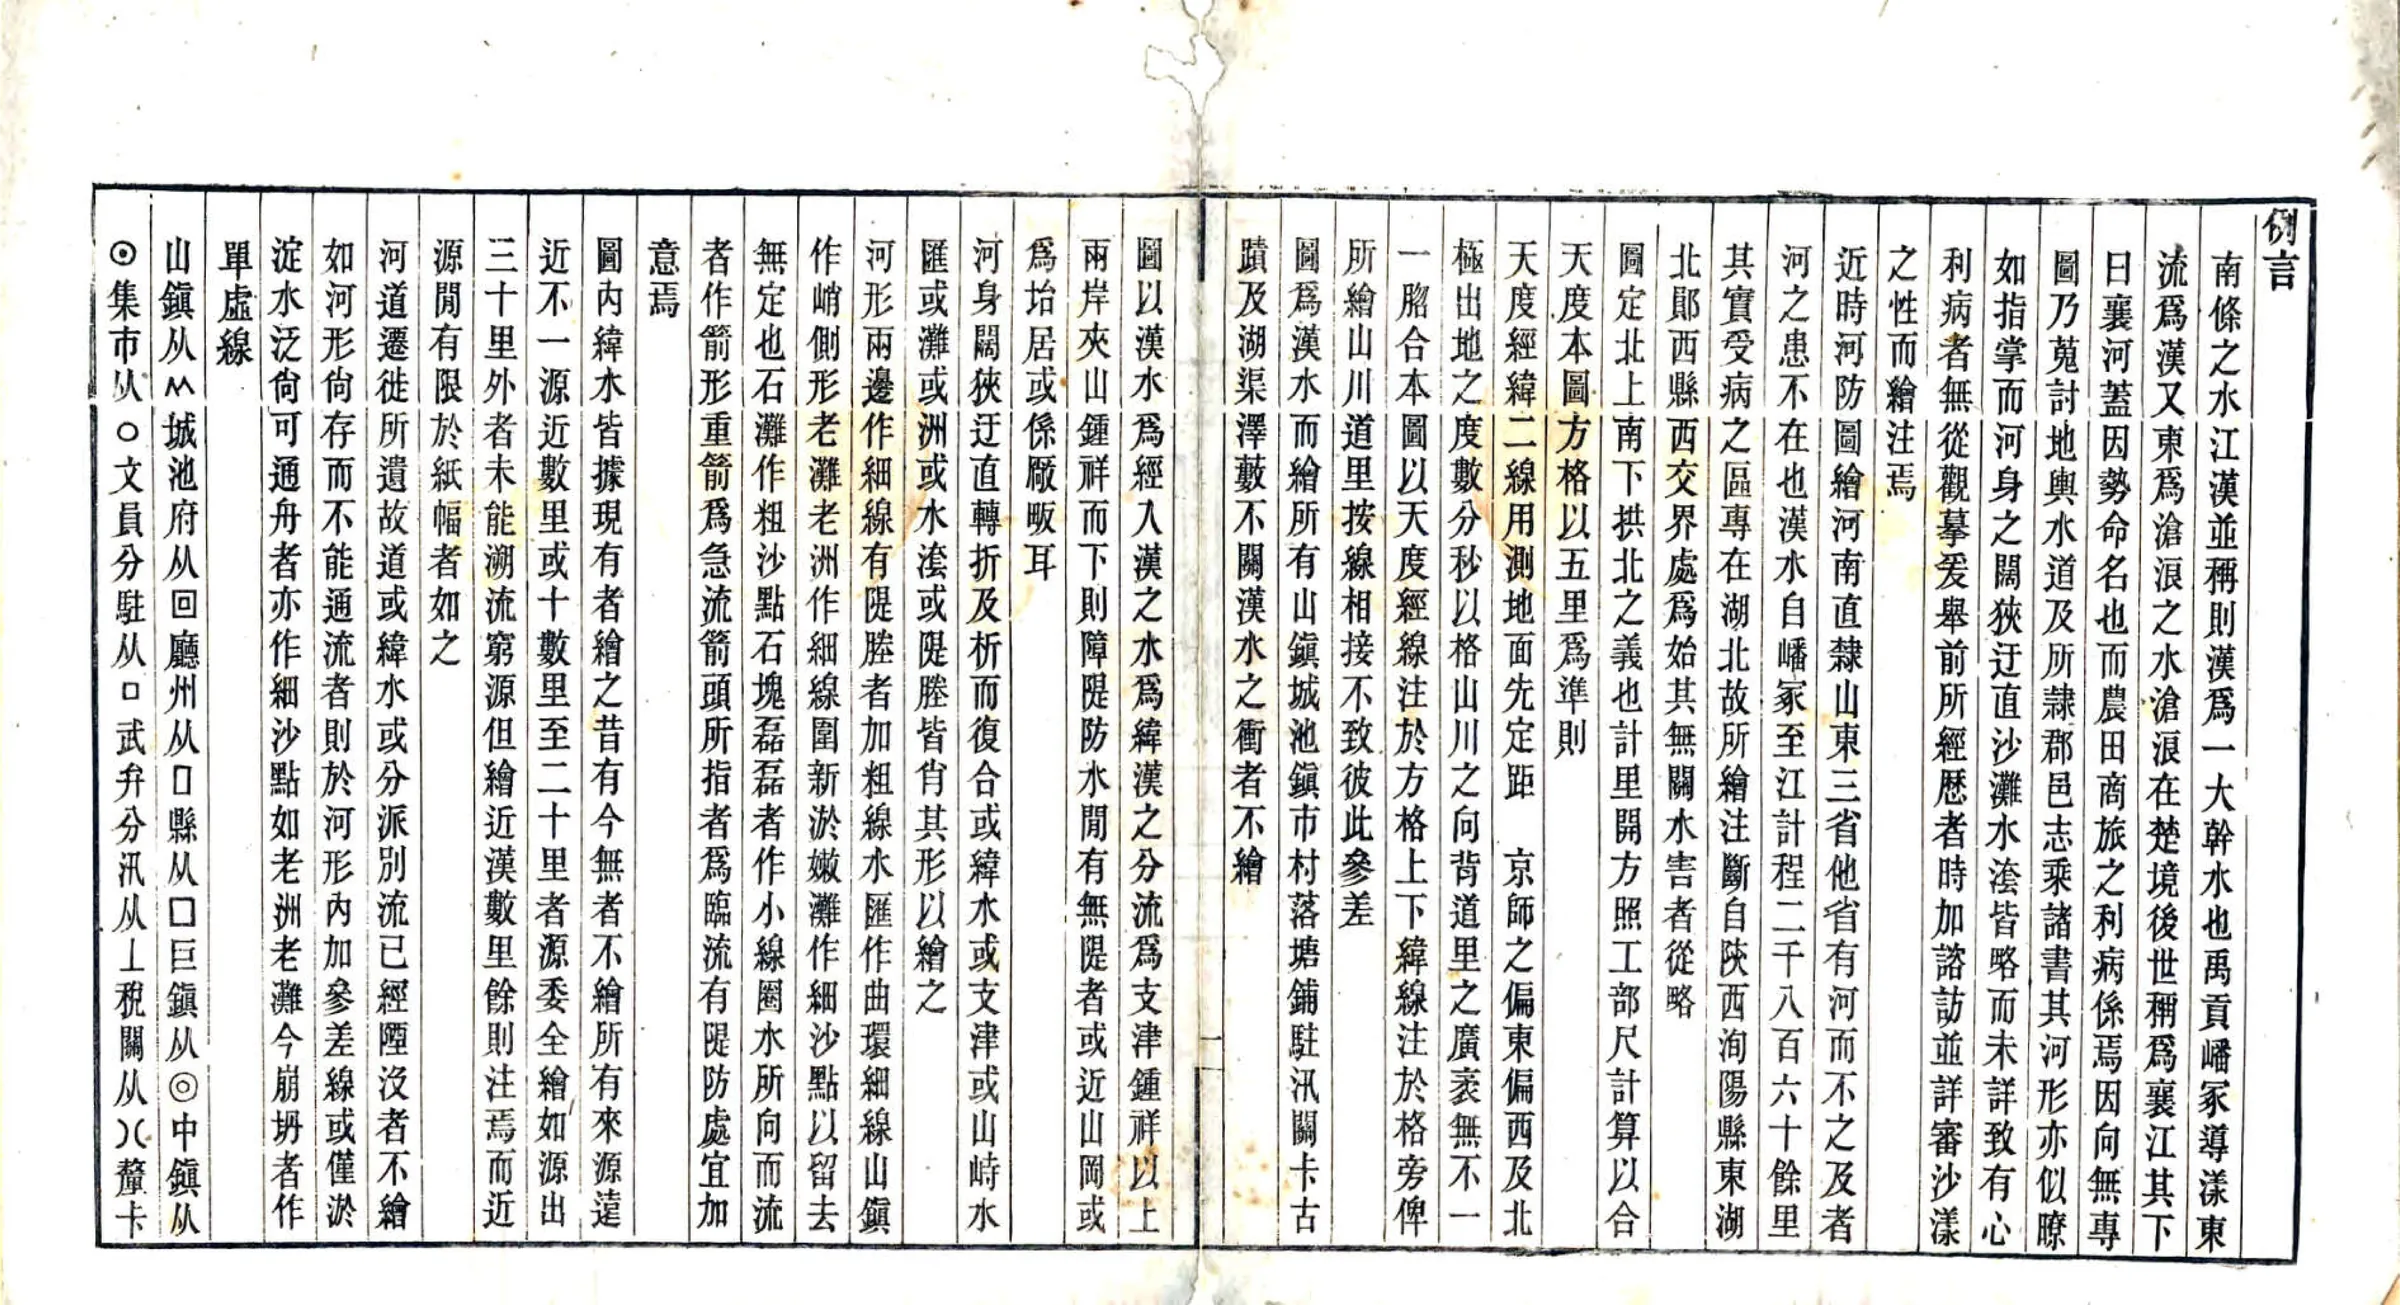 例言
南條之水江漢並稱則漢爲一大幹水也禹貢嶓冢導漾東
流爲漢又東爲滄浪之水滄浪在楚境後世稱爲襄江其下
曰襄河蓋因勢命名也而農田商旅之利病係焉因向無專
圖乃蒐討地輿水道及所隷郡邑志乘諸書其河形亦似瞭
如指掌而河身之闊狹迂直沙灘水渰皆略而未詳致有心
利病者無從觀摹爰舉前所經歷者時加諮訪並詳審沙漾
之性而繪注焉
近時河防圖繪河南直隸山東三省他省有河而不之及者
河之患不在也漢水自嶓冢至江計程二千八百六十餘里
其實受病之區專在湖北故所繪注斷自陝西洵陽縣東湖
北鄖西縣西交界處爲始其無關水害者從略
圖定北上南下拱北之義也計里開方照工部尺計算以合
天度本圖方格以五里爲準則
天度經緯二線用測地面先定距　京師之偏東偏西及北
極出地之度數分秒以格山川之向背道里之廣袤無不一
一脗合本圖以天度經線注於方格上下緯線注於格旁俾
所繪山川道里按線相接不致彼此參差
圖爲漢水而繪所有山鎭城池鎭市村落塘鋪駐汛關卡古
蹟及湖渠澤藪不關漢水之衝者不繪
一
圖以漢水爲經入漢之水爲緯漢之分流爲支津鍾祥以上
兩岸夾山鍾祥而下則障隄防水閒有無隄者或近山岡或
爲坮居或係厰畈耳
河身闊狹迂直轉折及析而復合或緯水或支津或山峙水
匯或灘或洲或水渰或隄塍皆肖其形以繪之
河形兩邊作細線有隄塍者加粗線水匯作曲環細線山鎭
作峭側形老灘老洲作細線圍新淤嫩灘作細沙點以留去
無定也石灘作粗沙點石塊磊磊者作小線圈水所向而流
者作箭形重箭爲急流箭頭所指者爲臨流有隄防處宜加
意焉
圖內緯水皆據現有者繪之昔有今無者不繪所有來源遠
近不一源近數里或十數里至二十里者源委全繪如源出
三十里外者未能溯流窮源但繪近漢數里餘則注焉而近
源閒有限於紙幅者如之
河道遷徙所遺故道或緯水或分派別流已經陻沒者不繪
如河形尙存而不能通流者則於河形內加參差線或僅淤
淀水泛尙可通舟者亦作細沙點如老洲老灘今崩坍者作
單虛線
山鎭从ᨓ城池府从回廳州从▯縣从口巨鎭从◎中鎭从
⊙集市从○文員分駐从□武弁分汛从⊥稅關从)(釐卡